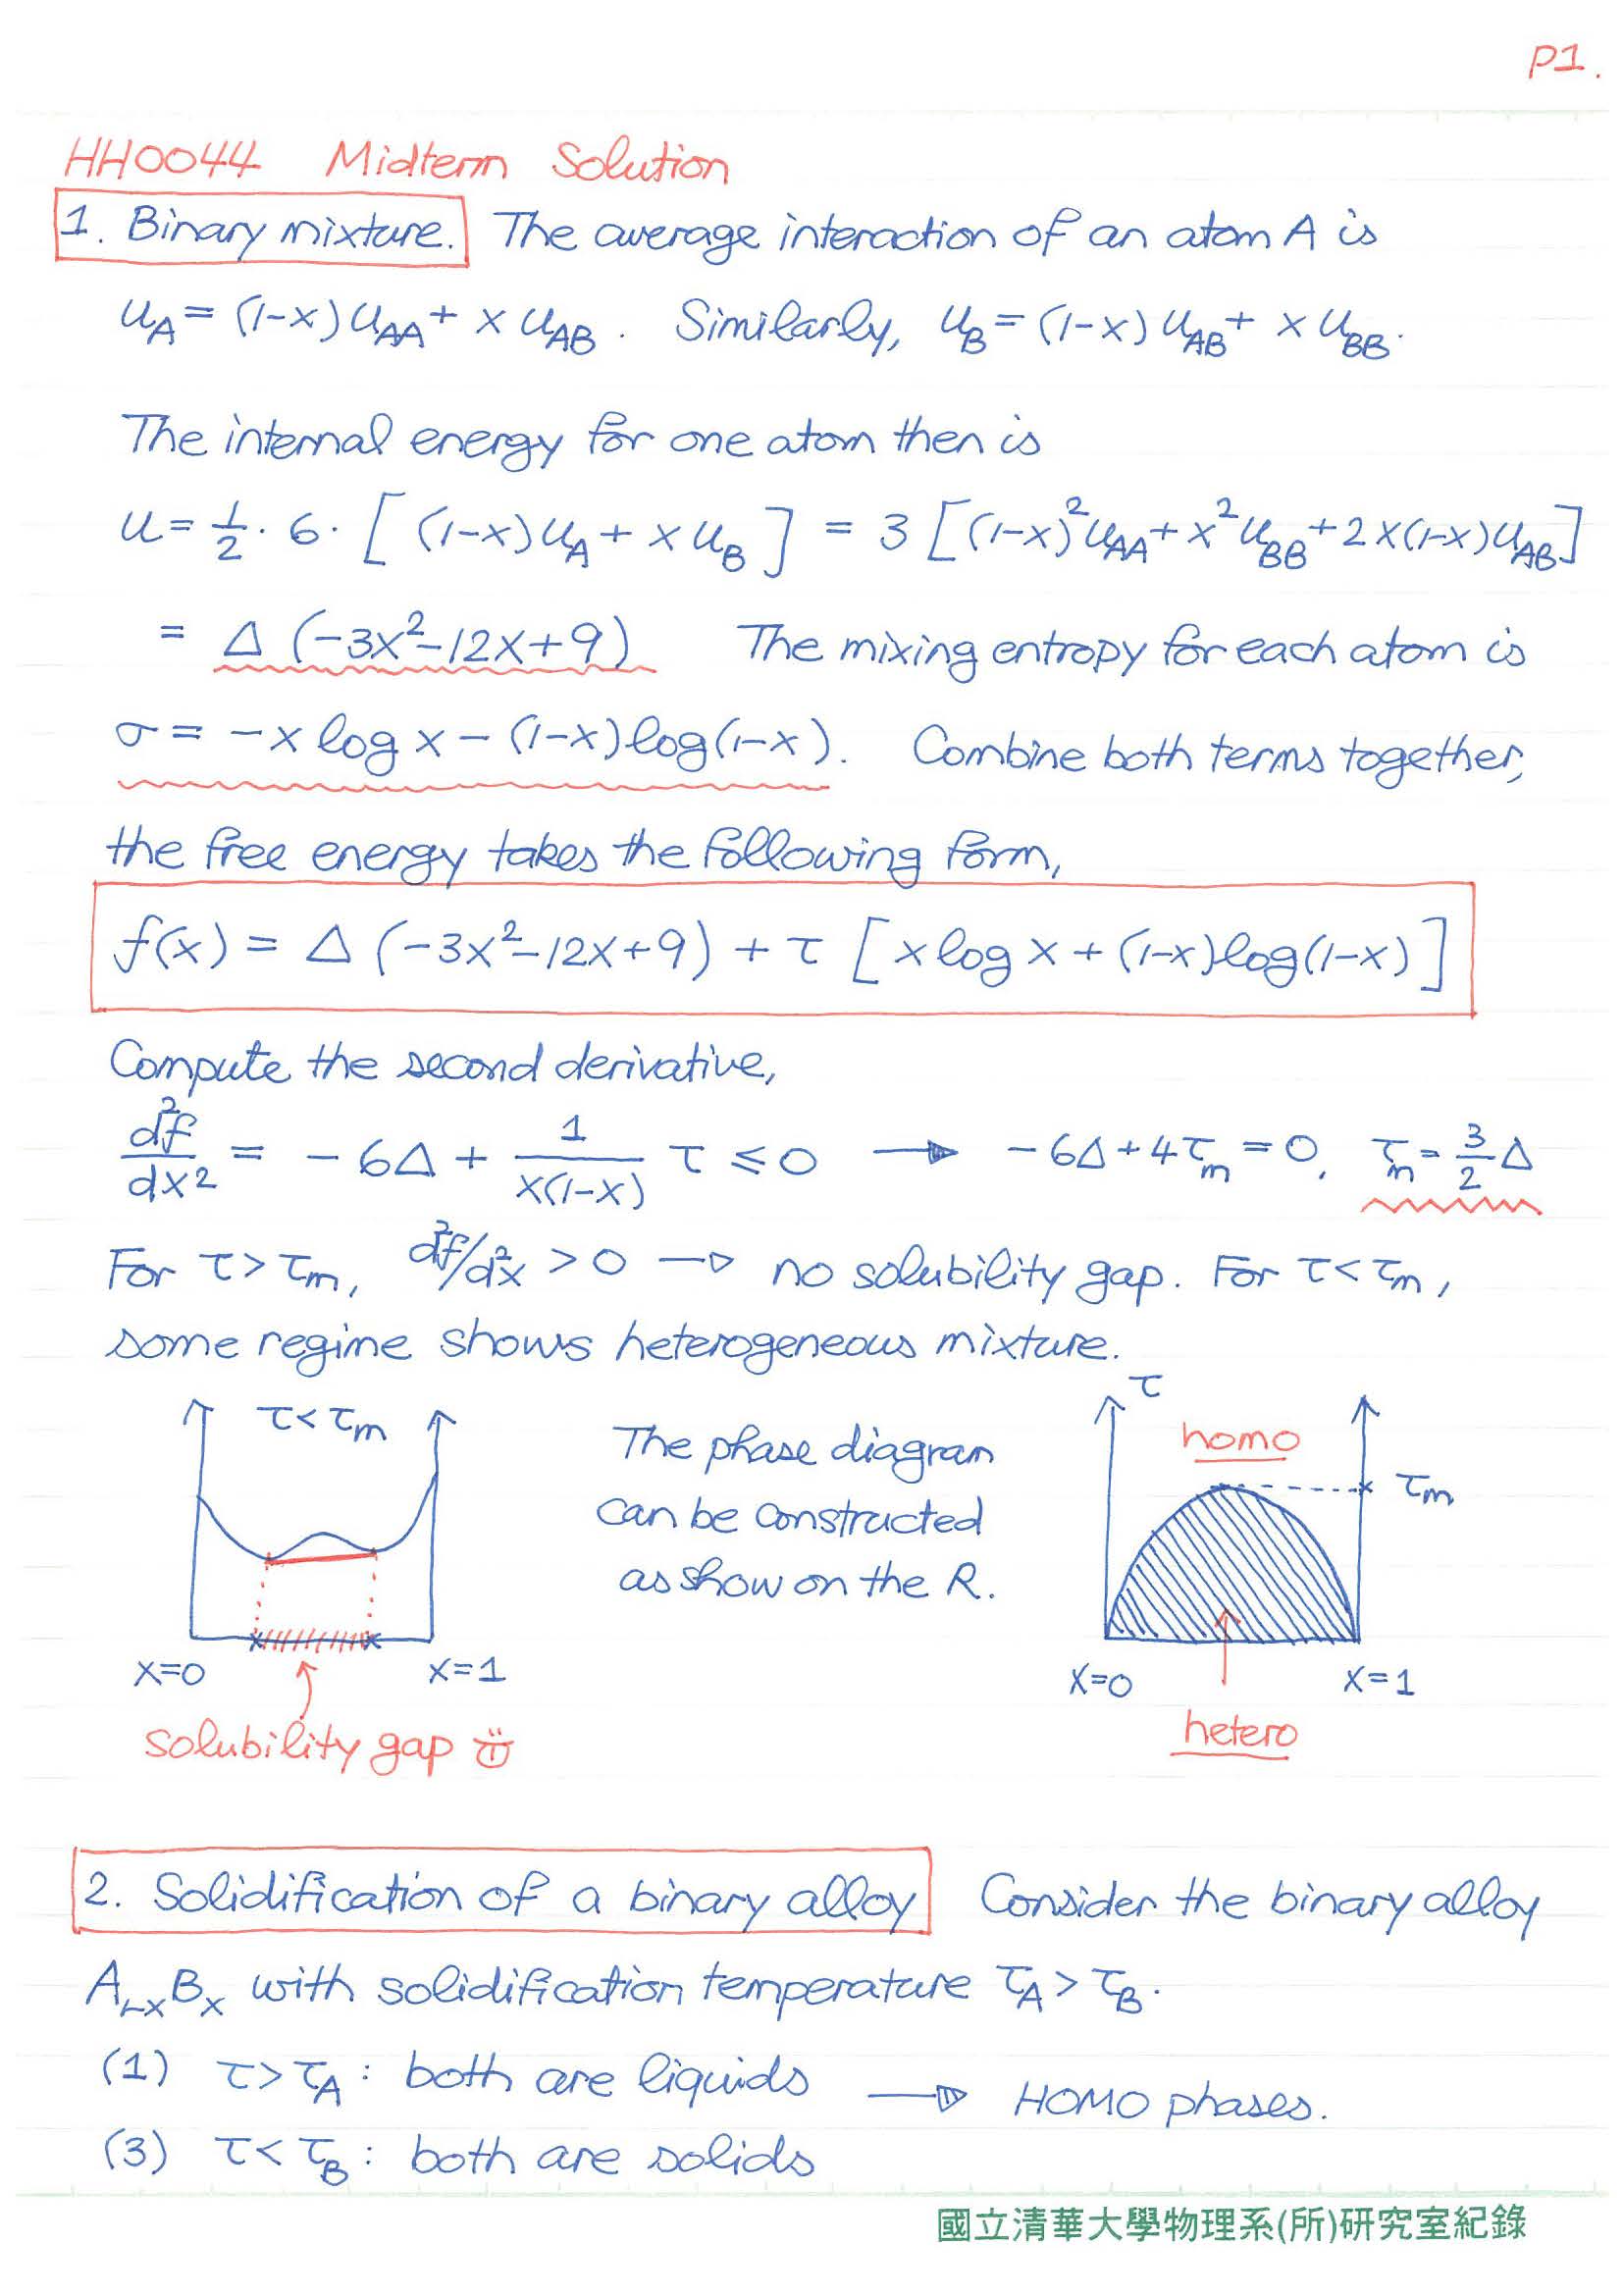 P1.
HH0044 Midterm Solution
1. Binary mixture. The average interaction of an atom A is
u_A = (1-x) u_AA + x u_AB. Similarly, u_B = (1-x) u_AB + x u_BB.
The internal energy for one atom then is
u = 1/2 · 6 · [(1-x) u_A + x u_B] = 3 [(1-x)² u_AA + x² u_BB + 2x(1-x) u_AB]
= Δ (-3x²-12x+9) The mixing entropy for each atom is
σ = -x log x - (1-x) log(1-x). Combine both terms together,
the free energy takes the following form,
f(x) = Δ (-3x²-12x+9) + τ [x log x + (1-x) log(1-x)]
Compute the second derivative,
d²f/dx² = -6Δ + 1/(x(1-x)) τ ≤ 0 → -6Δ + 4τ_m = 0, τ_m = 3/2 Δ
For τ > τ_m, d²f/d²x > 0 → no solubility gap. For τ < τ_m,
some regime shows heterogeneous mixture.
τ < τ_m
x=0 x=1
solubility gap
The phase diagram
can be constructed
as show on the R.
τ
homo
τ_m
x=0 x=1
hetero
2. Solidification of a binary alloy Consider the binary alloy
A_1-x B_x with solidification temperature τ_A > τ_B.
(1) τ > τ_A : both are liquids → HOMO phases.
(3) τ < τ_B : both are solids
國立清華大學物理系(所)研究室紀錄